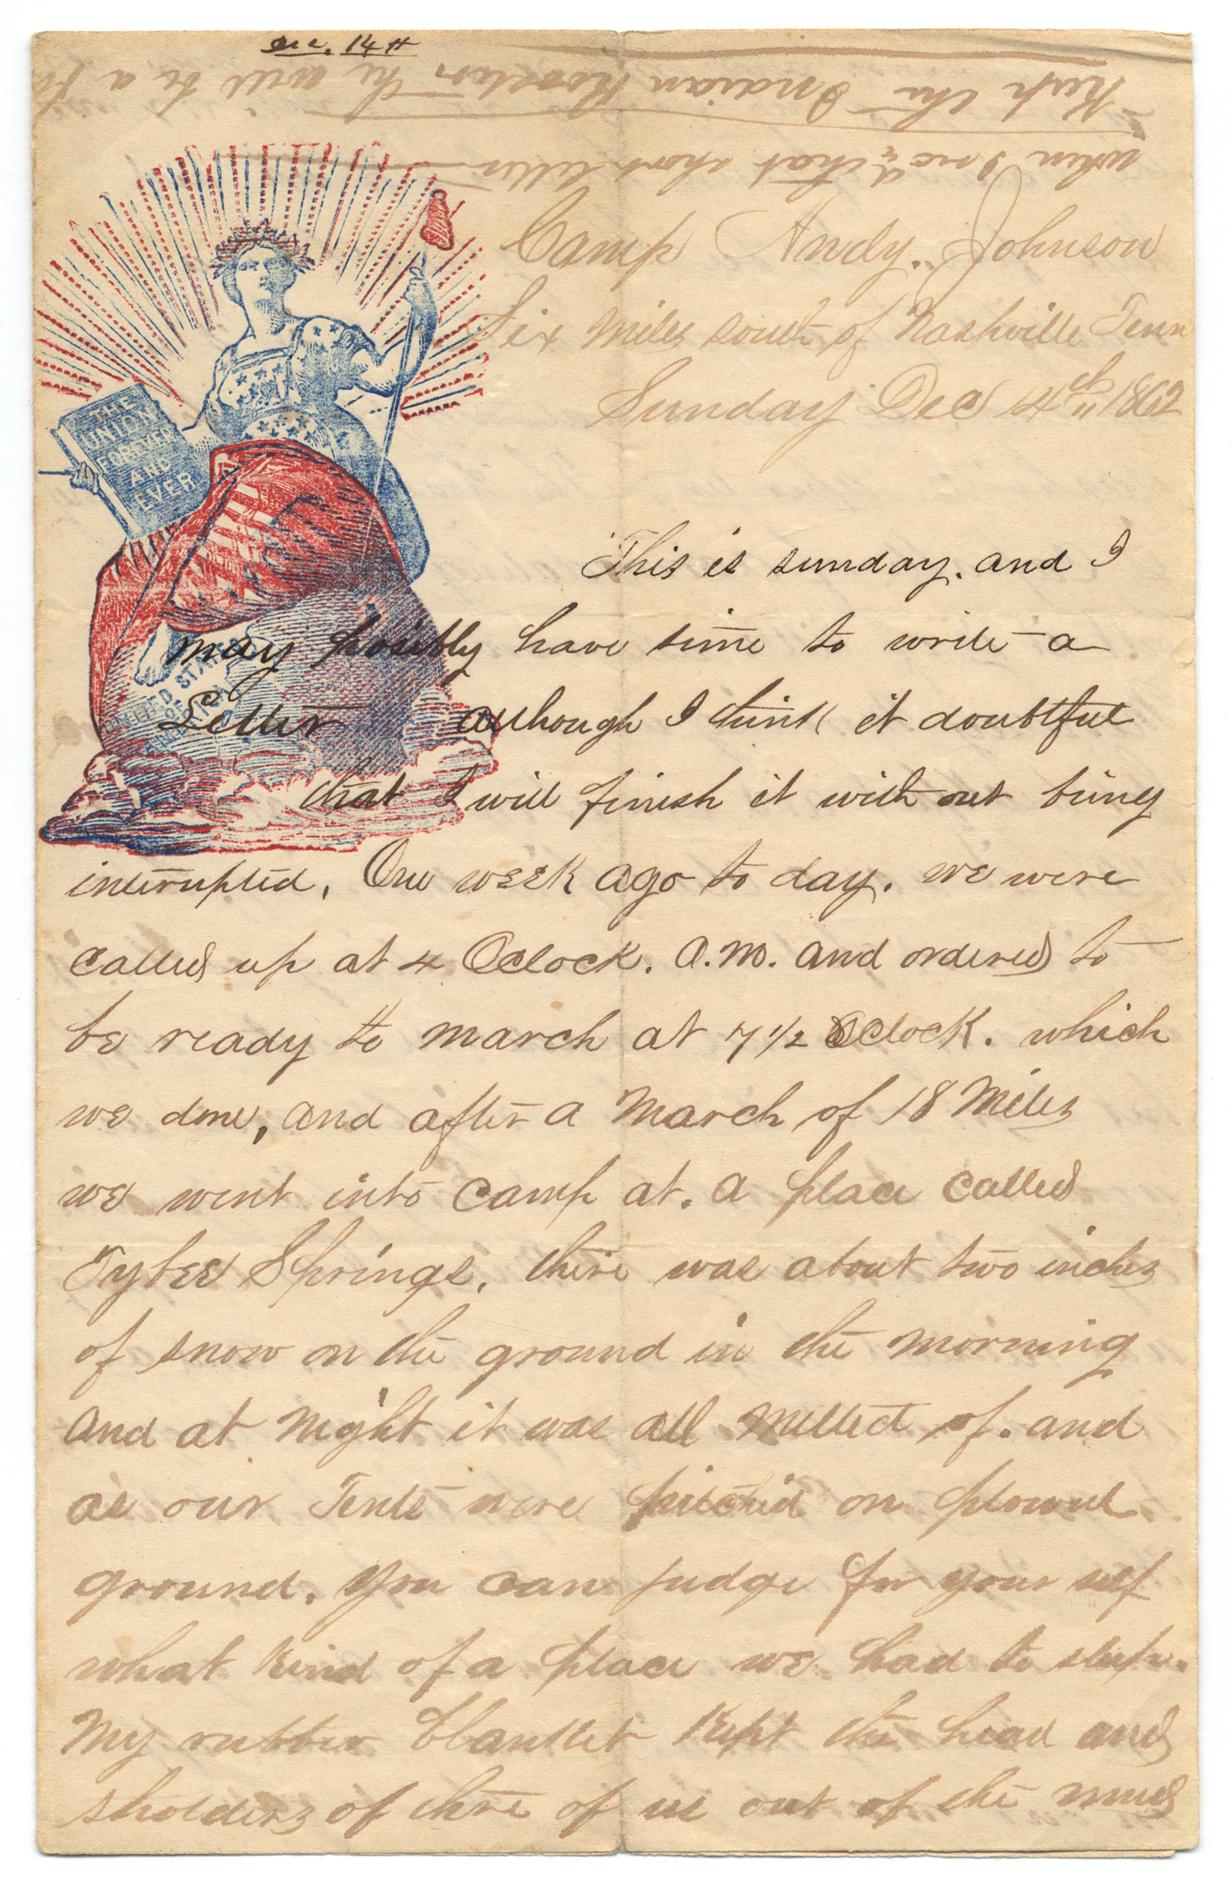 Dec. 14th
Keep the Indian Rooster he will be a
when I rec'd that short letter
Camp Andy. Johnson
Six Miles south of Nashville Tenn
Sunday Dec 14th 1862
THE
UNION
FOREVER
AND
EVER
UNITED STATES
This is sunday. and I
may posibly have time to write a
Letter although I think it doubtful
that I will finish it with out being
interupted. One week ago to day. we were
called up at 4 Oclock. A.M. and ordered to
be ready to march at 7 1/2 Oclock. which
we done, and after a March of 18 Miles
we went into camp at. a place called
Tybee Springs. there was about two inches
of snow on the ground in the morning
and at Night it was all Melted of. and
as our Tents were pitched on plowed
ground. you can judge for your self
what kind of a place we had to sleep.
My rubber blanket kept the head and
sholders of thre of us out of the mud